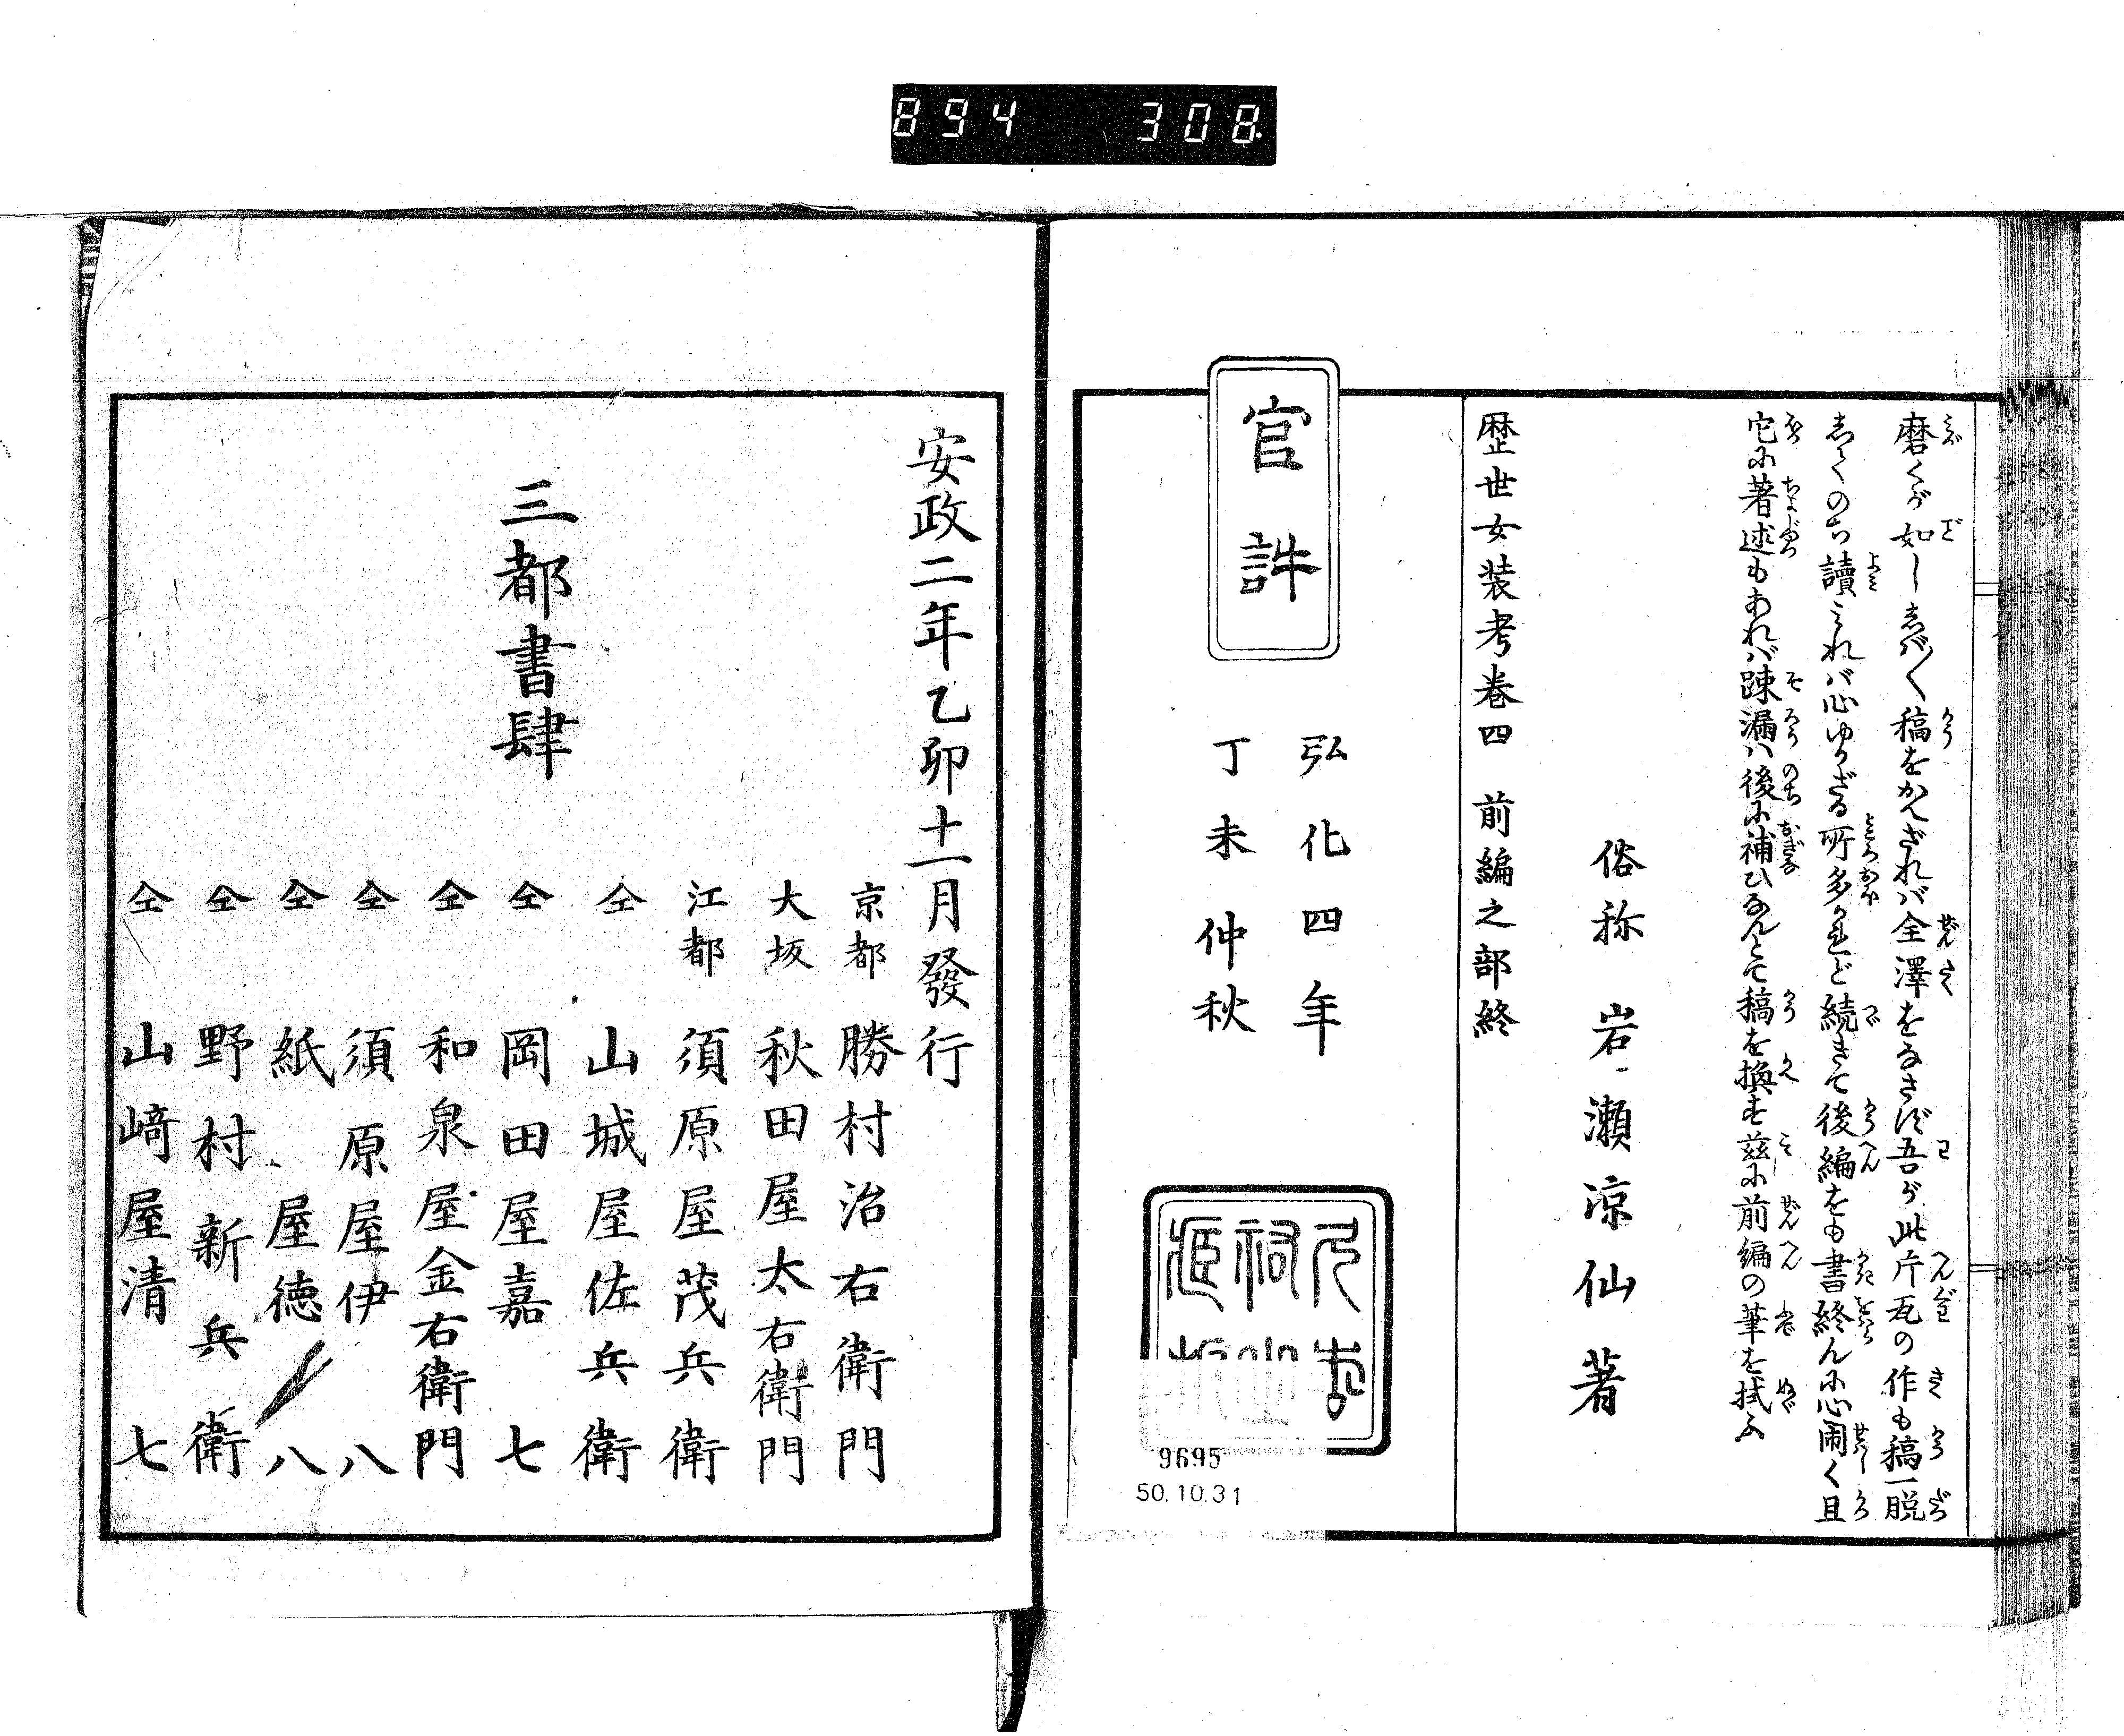 894 308.
磨くが如ししば〱稿をかへざれバ全澤をなさず吾が此片瓦の作も稿一脱
しくのち讀みれバ心ゆかざる所多かれど続きて後編をも書終んに心閙く且
它に著述もあれバ踈漏ハ後に補ひなんとて稿を換ず茲に前編の筆を拭ふ
俗称 岩瀬涼仙著
歴世女装考巻四 前編之部終
官許
弘化四年
丁未仲秋
9695
50.10.31
安政二年乙卯十一月發行
三都書肆
京都 勝村治右衛門
大坂 秋田屋太右衛門
江都 須原屋茂兵衛
仝 山城屋佐兵衛
仝 岡田屋嘉七
仝 和泉屋金右衛門
仝 須原屋伊八
仝 紙屋徳八
仝 野村新兵衛
仝 山﨑屋清七